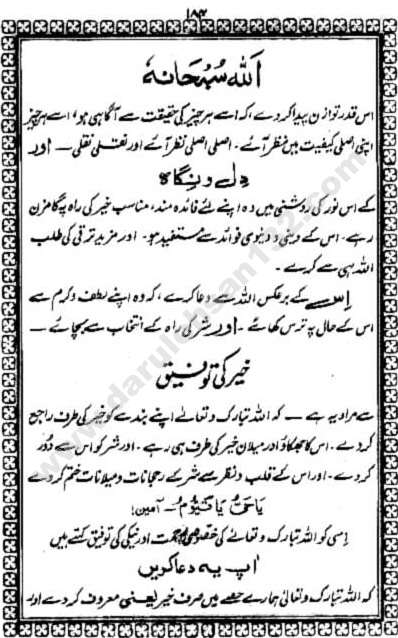 ۱۸۳
اللہ سبحانہٗ
اس قدر توازن پیدا کر دے، کہ اسے ہر چیز کی حقیقت سے آگاہی ہو، اسے ہر چیز
اپنی اصلی کیفیت میں نظر آئے۔ اصلی اصلی نظر آئے اور نقلی نقلی — اور
دل و نگاہ
کے اس نور کی روشنی میں وہ اپنے لئے فائدہ مند، مناسب خیر کی راہ پہ گامزن
رہے۔ اس کے دینی و دنیوی فوائد سے مستفید ہو۔ اور مزید ترقی کی طلب
اللہ ہی سے کرے۔
اس کے برعکس اللہ سے دعا کرے، کہ وہ اپنے لطف و کرم سے
اس کے حال پہ ترس کھائے۔ اور شر کی راہ کے انتخاب سے بچائے —
خیر کی توفیق
سے مراد یہ ہے — کہ اللہ تبارک و تعالےٰ اپنے بندے کو خیر کی طرف راجع
کر دے۔ اس کا جھکاؤ اور میلان خیر کی طرف ہی رہے۔ اور شر کو اس سے دُور
کر دے۔ اور اس کے قلب و نظر سے شر کے رجحانات و میلانات ختم کر دے
یَا حَیُّ یَا قَیُّوْمُ — آمین!
اِسی کو اللہ تبارک و تعالےٰ کی خصوصی رحمت اور نیکی کی توفیق کہتے ہیں
آپ یہ دعا کریں
کہ اللہ تبارک و تعالیٰ ہمارے حصے میں صرف خیر یعنی معروف کر دے اور
www.darulehsan132.com